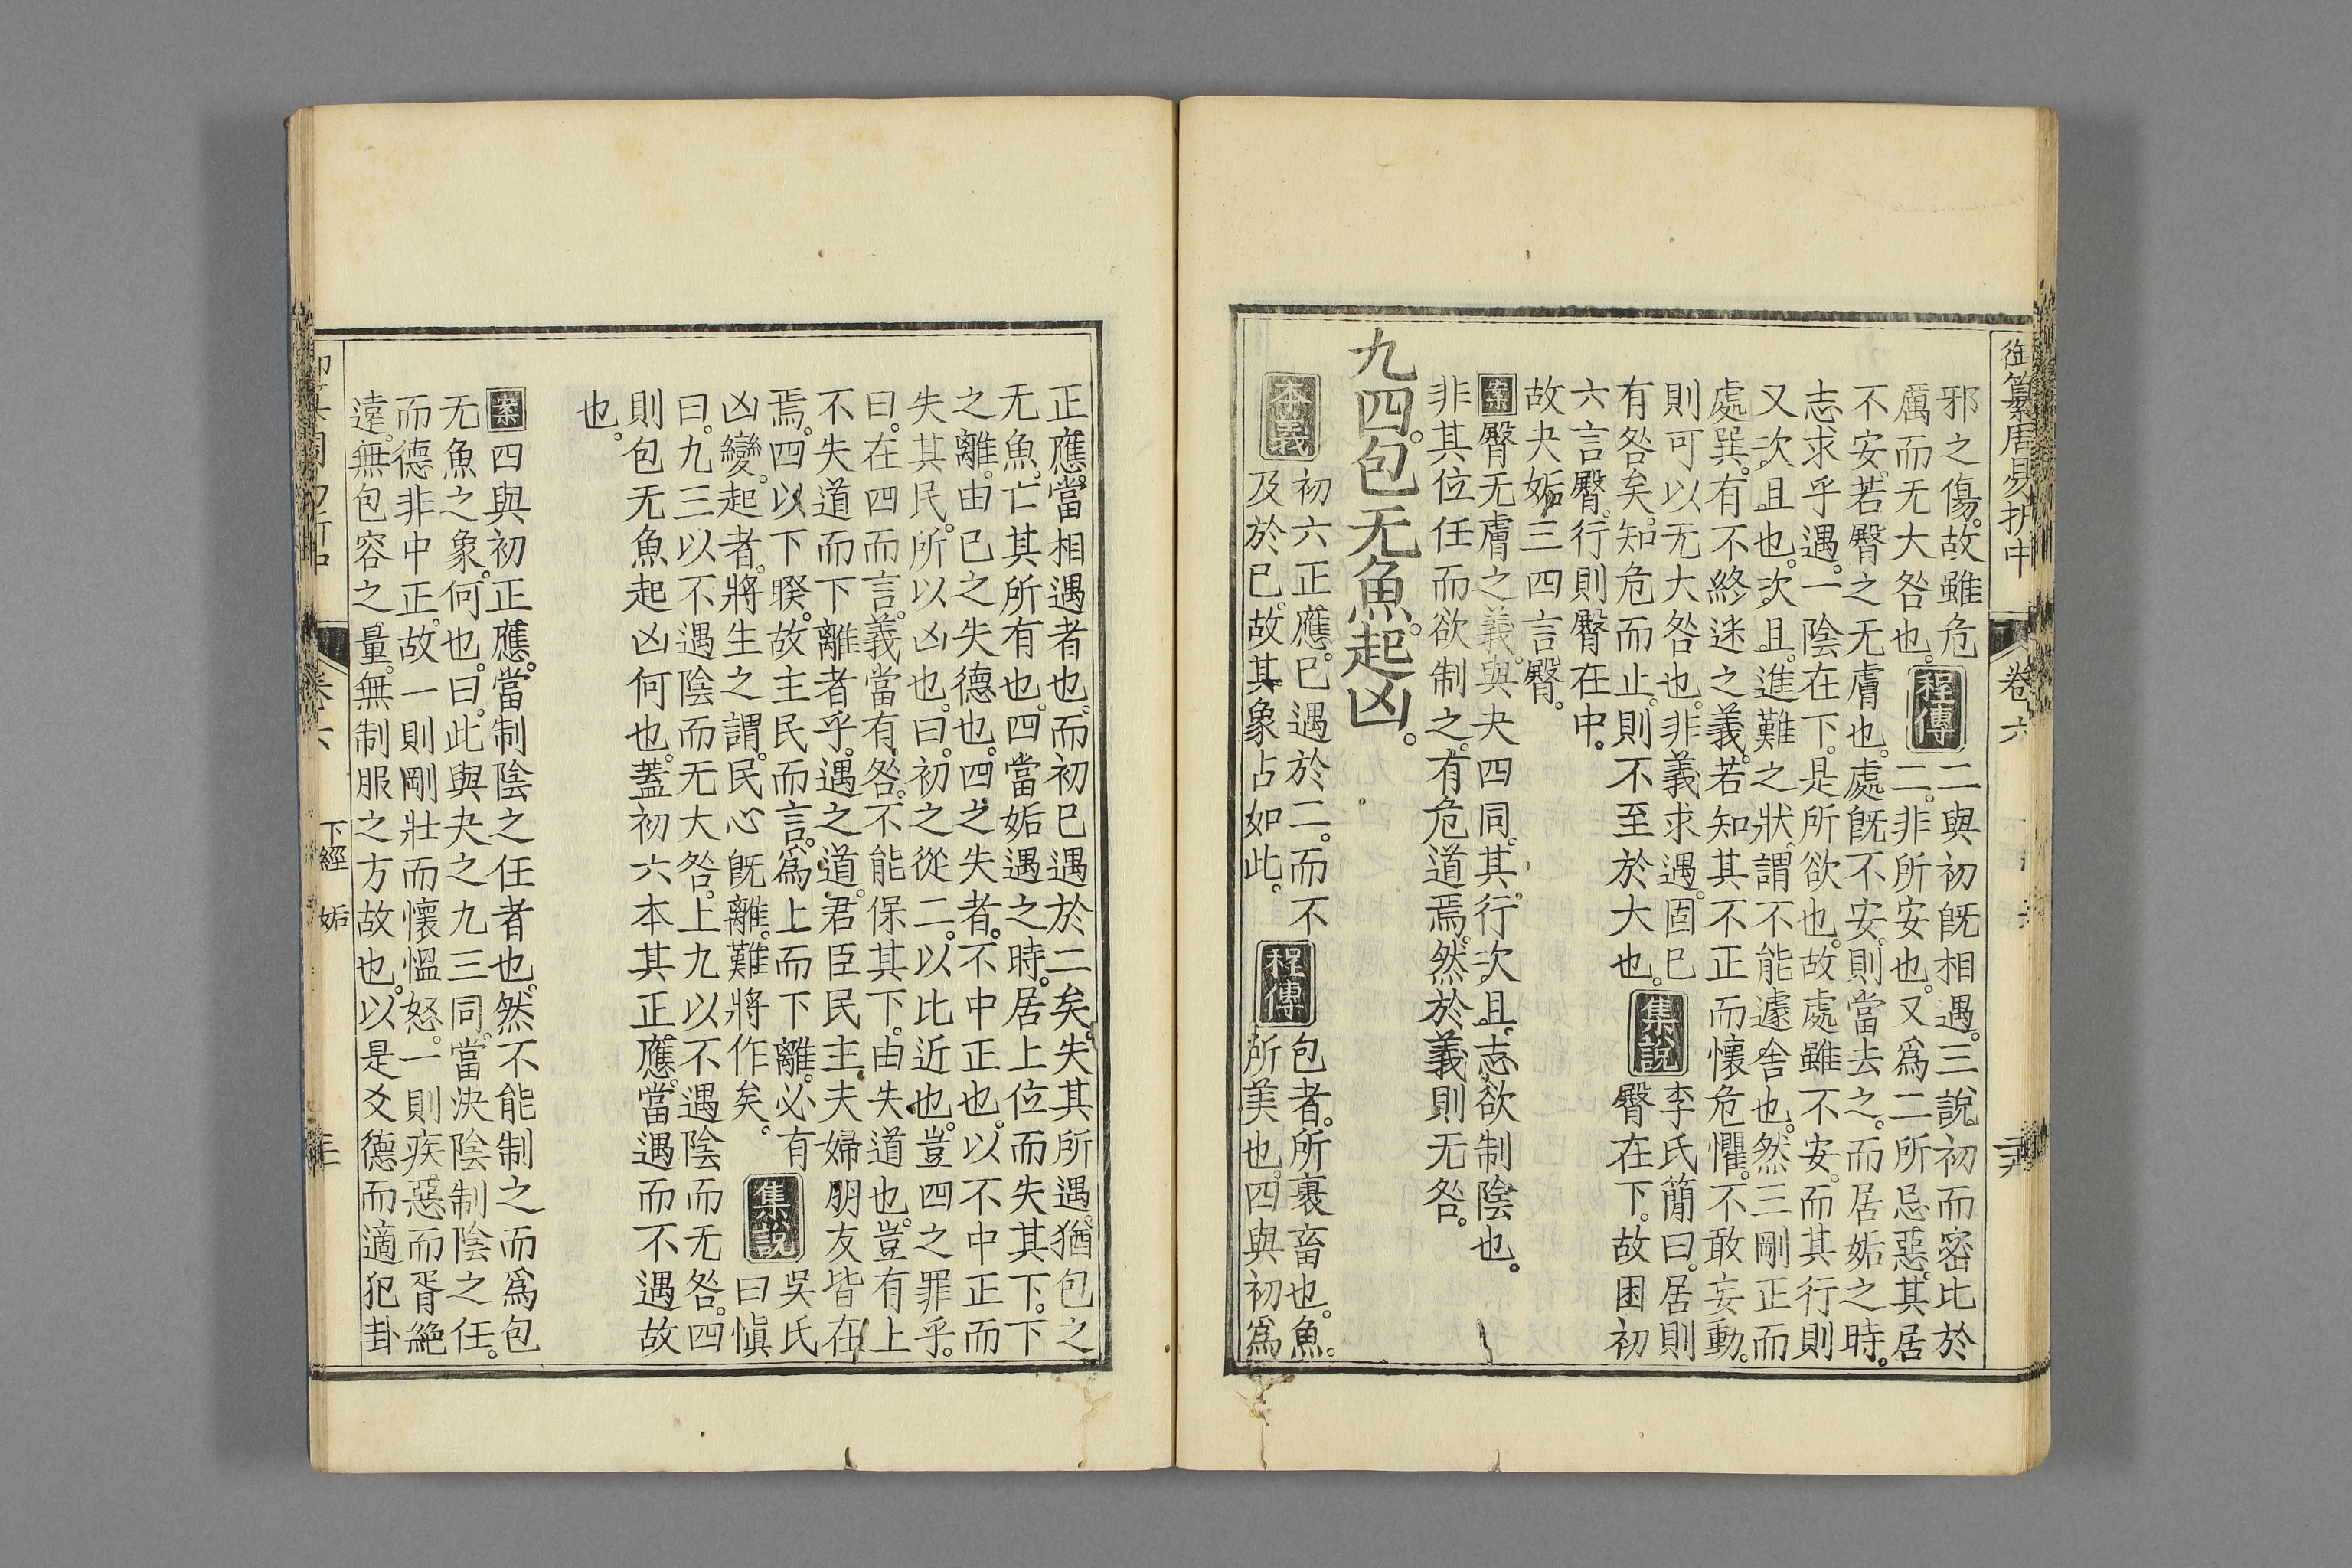 御纂周易折中
卷六
邪之傷。故雖危
厲而无大咎也。程傳二與初既相遇。三說初而密比於
二。非所安也。又爲二所忌惡。其居
不安。若臀之无膚也。處既不安。則當去之。而居姤之時。
志求乎遇。一陰在下。是所欲也。故處雖不安。而其行則
又次且也。次且。進難之狀。謂不能遽舍也。然三剛正而
處巽。有不終迷之義。若知其不正而懷危懼。不敢妄動。
則可以无大咎也。非義求遇。固已
有咎矣。知危而止。則不至於大也。集說李氏簡曰。居則
臀在下。故困初
六言臀。行則臀在中。
故夬姤三四言臀。
案臀无膚之義。與夬四同。其行次且。志欲制陰也。
非其位任而欲制之。有危道焉。然於義則无咎。
九四。包无魚。起凶。
本義初六正應。已遇於二。而不
及於已。故其象占如此。程傳包者。所裹畜也。魚。
所美也。四與初爲
正應。當相遇者也。而初已遇於二矣。失其所遇。猶包之
无魚。亡其所有也。四當姤遇之時。居上位而失其下。下
之離。由已之失德也。四之失者。不中正也。以不中正而
失其民。所以凶也。曰。初之從二。以比近也。豈四之罪乎。
曰。在四而言。義當有咎。不能保其下。由失道也。豈有上
不失道而下離者乎。遇之道。君臣民主夫婦朋友皆在
焉。四以下睽。故主民而言。爲上而下離。必有
凶變。起者。將生之謂。民心既離。難將作矣。集說吳氏
曰愼
曰。九三以不遇陰而无大咎。上九以不遇陰而无咎。四
則包无魚起凶何也。蓋初六本其正應。當遇而不遇故
也。
案四與初正應。當制陰之任者也。然不能制之而爲包
无魚之象。何也。曰。此與夬之九三同。當決陰制陰之任。
而德非中正。故一則剛壯而懷慍怒。一則疾惡而胥絶
遠。無包容之量。無制服之方故也。以是爻德而適犯卦
卷六
下經 姤